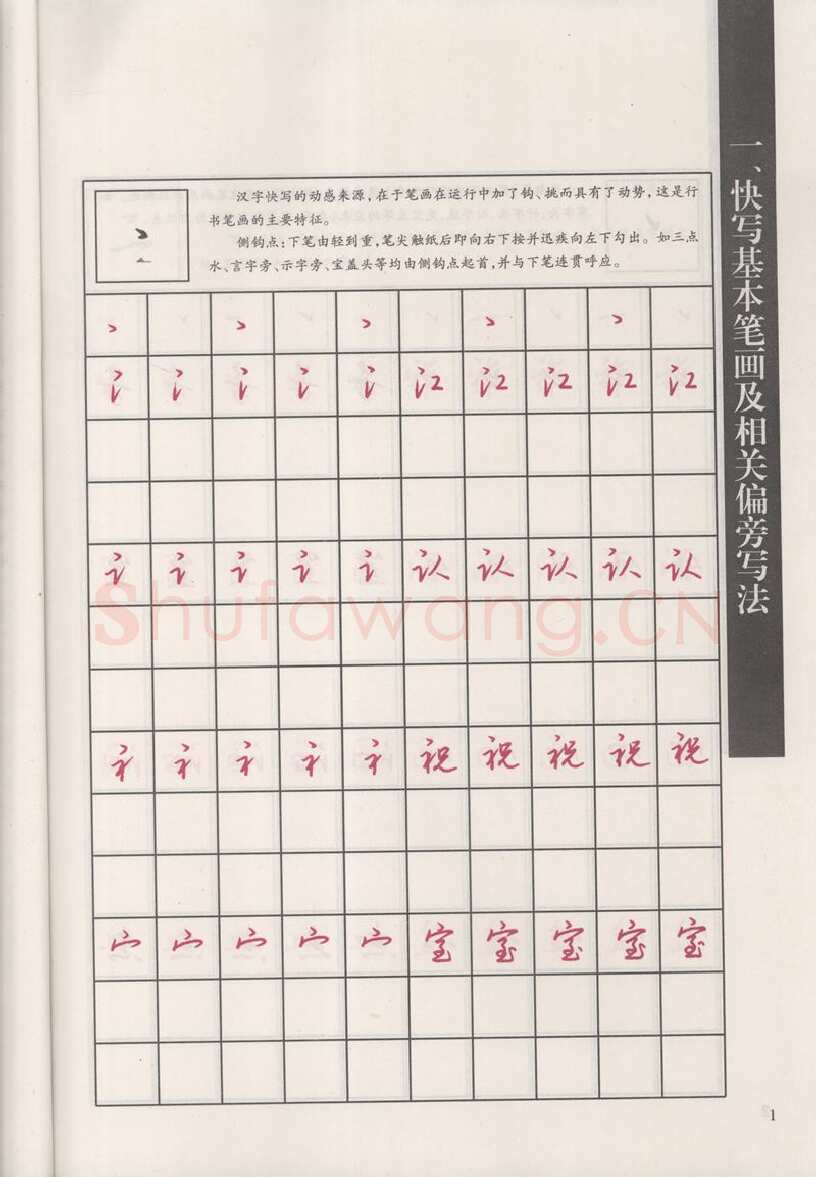 一、快写基本笔画及相关偏旁写法
汉字快写的动感来源,在于笔画在运行中加了钩、挑而具有了动势,这是行
书笔画的主要特征。
侧钩点:下笔由轻到重,笔尖触纸后即向右下按并迅疾向左下勾出。如三点
水、言字旁、示字旁、宝盖头等均由侧钩点起首,并与下笔连贯呼应。
丶 丶 丶 丶 丶
氵 氵 氵 氵 氵 江 江 江 江 江
讠 讠 讠 讠 讠 认 认 认 认 认
Shufawang.CN
礻 礻 礻 礻 礻 祝 祝 祝 祝 祝
宀 宀 宀 宀 宀 室 室 室 室 室
1